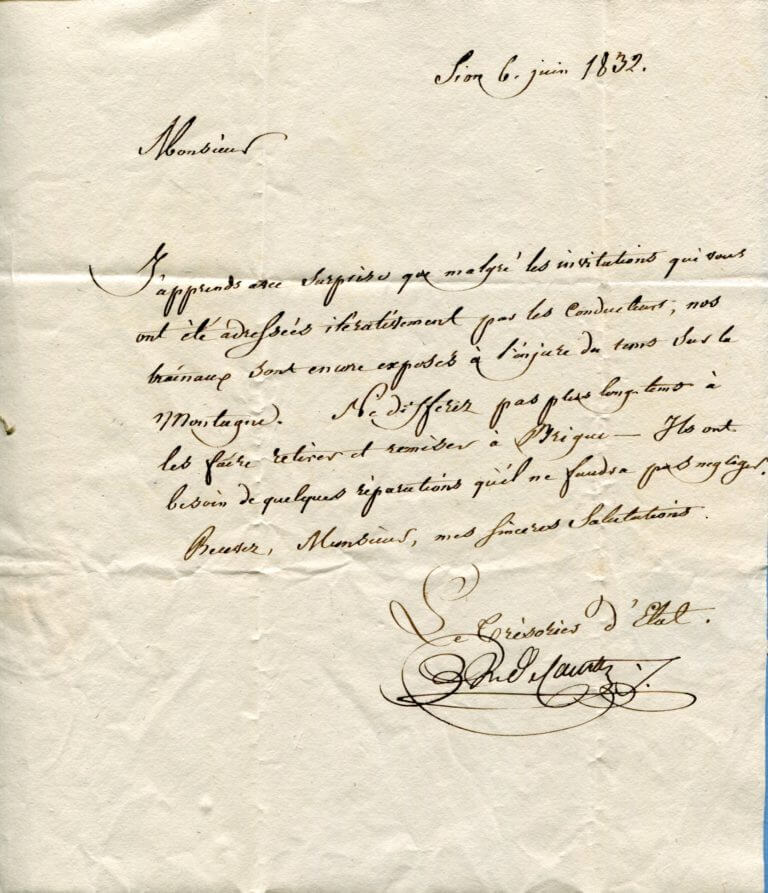 Sion 6. juin 1832.
Monsieur
J'apprends avec surprise que malgré les invitations qui vous
ont été adressées iterativement par les Conducteurs, nos
trainaux sont encore exposés à l'injure du tems sur la
Montagne. Ne differez pas plus long-tems à
les faire retirer et remiser à Brigue — Ils ont
besoin de quelques réparations qu'il ne faudra pas negliger.
Recevez, Monsieur, mes sincères Salutations.
Le Trésorier d'Etat.